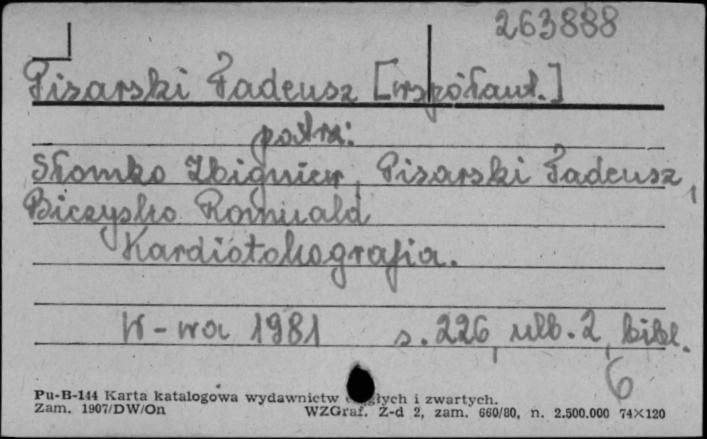 263888
Pisarski Tadeusz [współaut.]
patrz:
Słomko Zbigniew, Pisarski Tadeusz,
Biczysko Romuald
Kardiotokografia.
W-wa 1981 s. 226, ulb. 2, bibl.
6
Pu-B-144 Karta katalogowa wydawnictw ciągłych i zwartych.
Zam. 1907/DW/On WZGraf. Z-d 2, zam. 660/80, n. 2.500.000 74×120